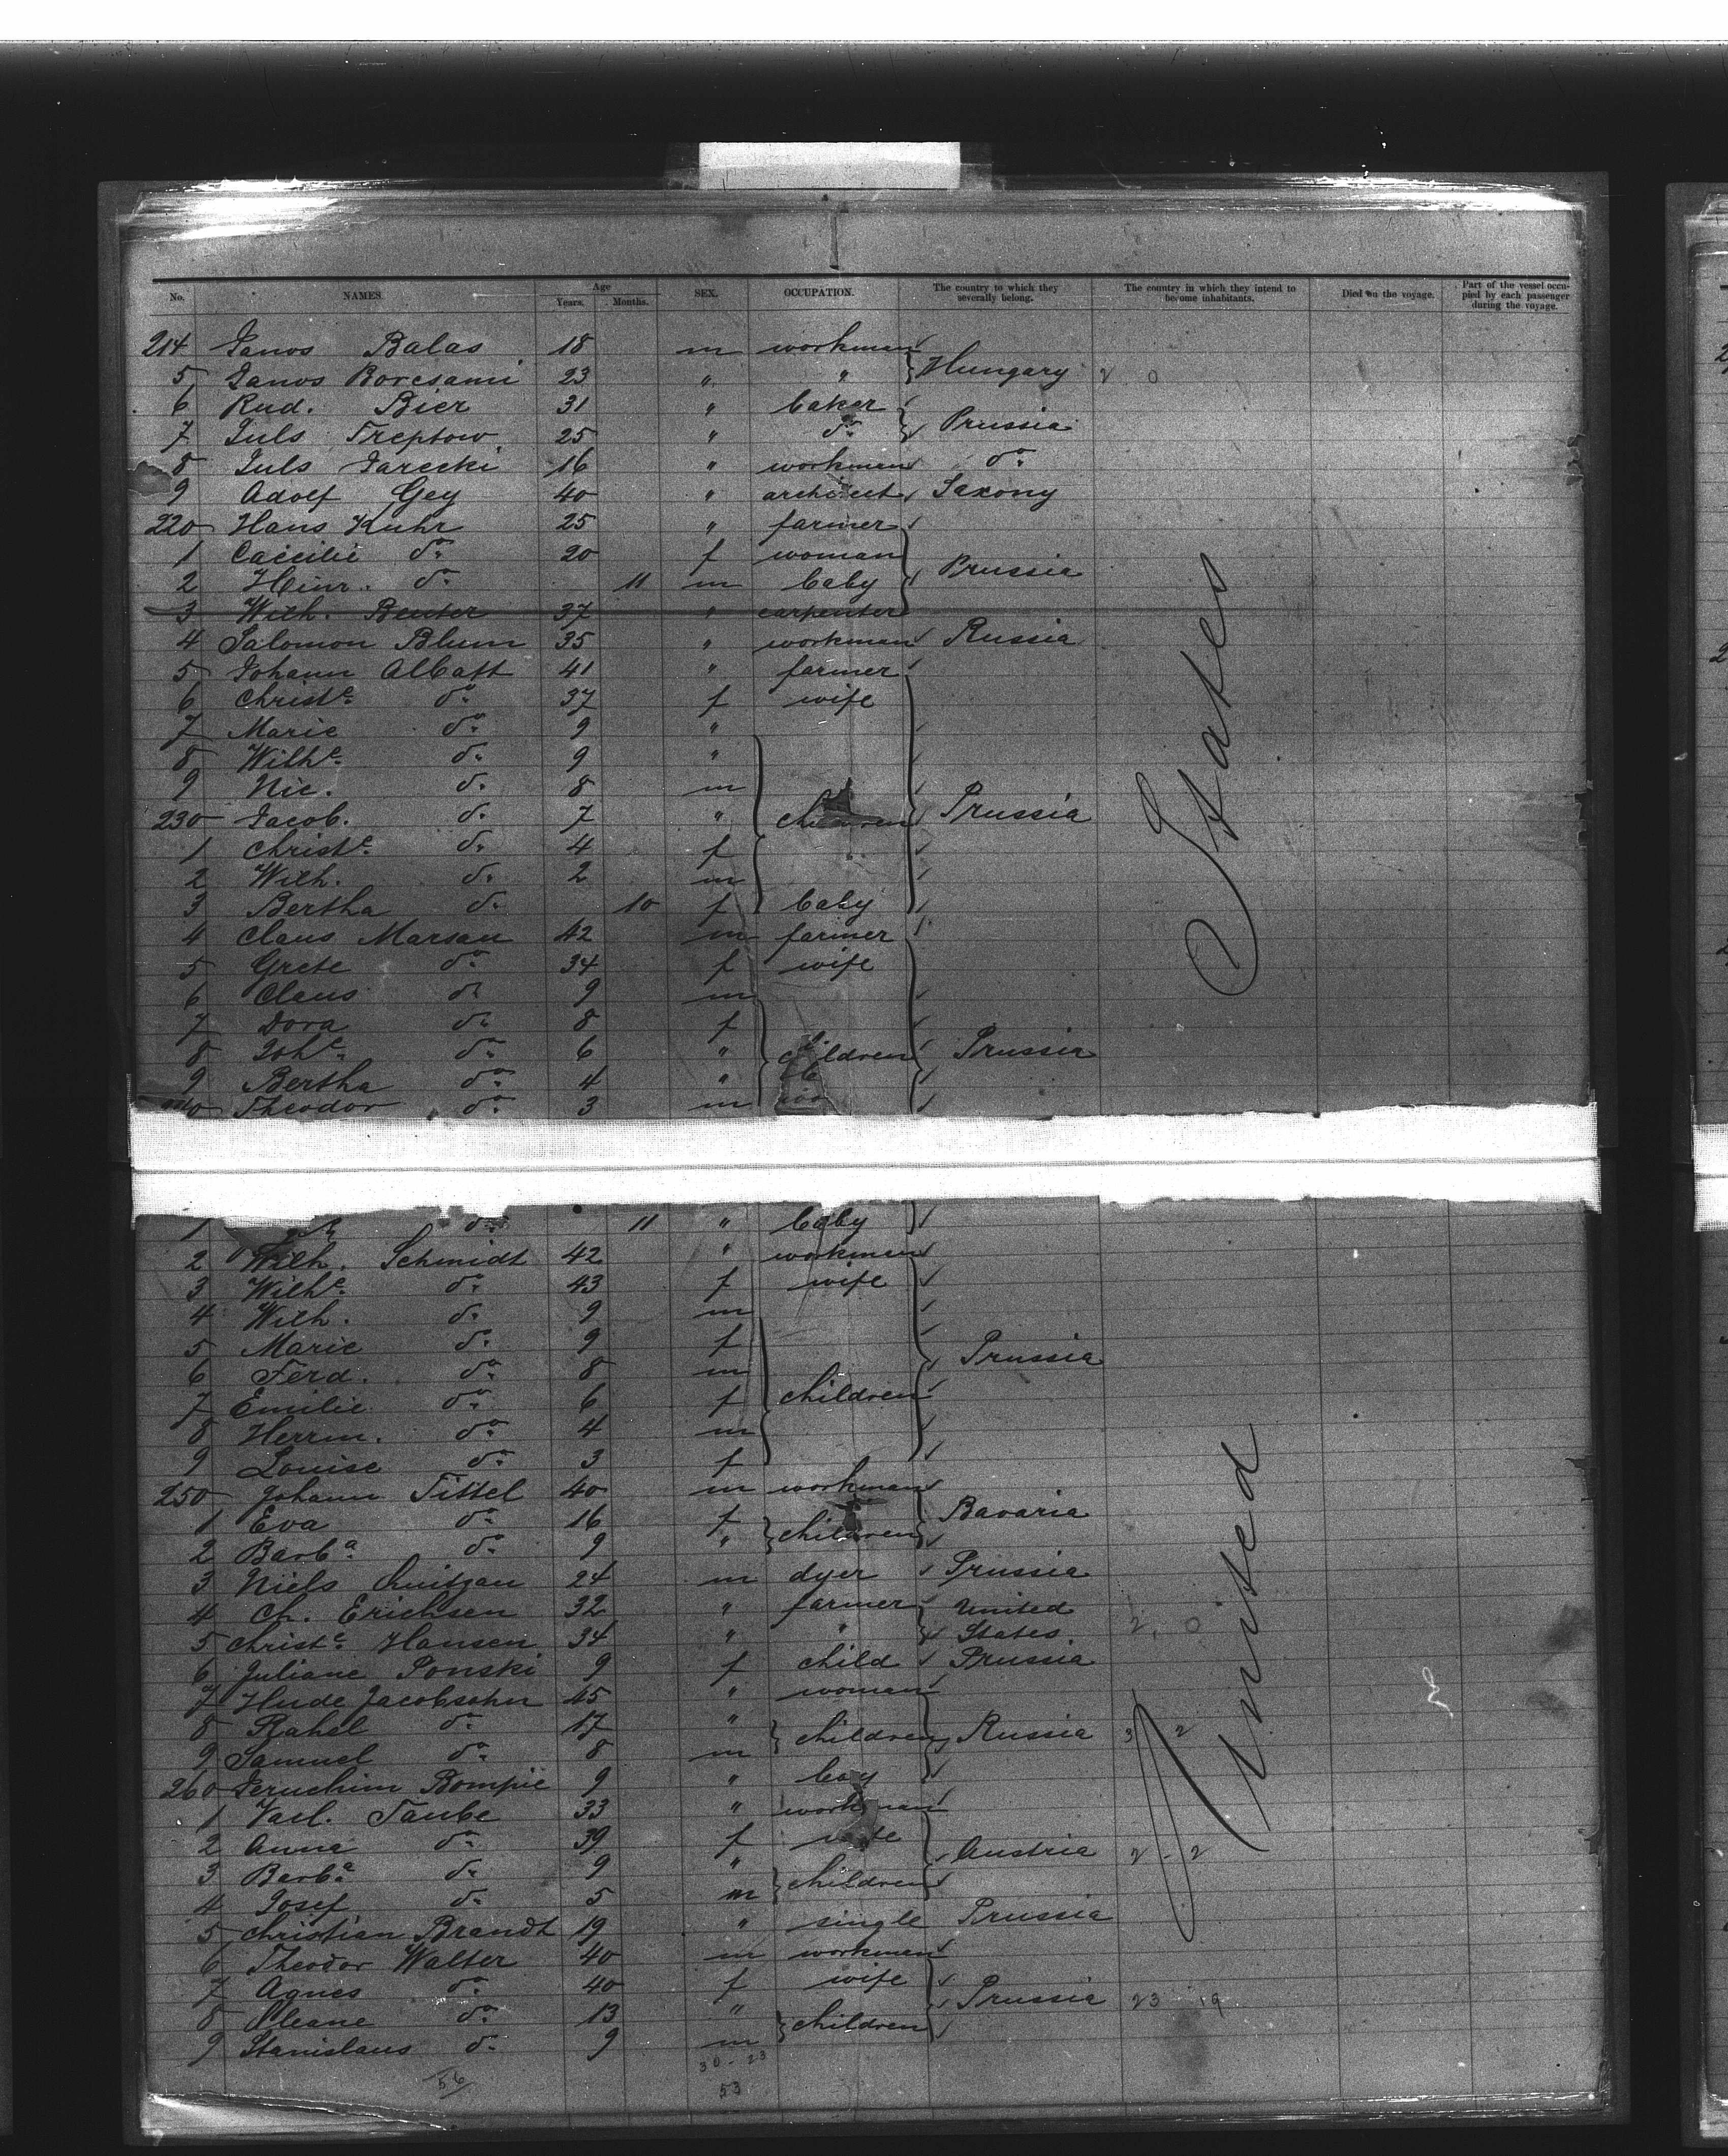 No. NAMES. Age Years. Months. SEX. OCCUPATION. The country to which they severally belong. The country in which they intend to become inhabitants. Died on the voyage. Part of the vessel occupied by each passenger during the voyage.
214 Janos Balas 18 m workman
5 Janos Borcsami 23 " " Hungary 2 0
6 Rud. Bier 31 " baker
7 Juls Treptow 25 " do Prussia
8 Juls Jarecki 16 " workman do
9 Adolf Gey 40 " architect Saxony
220 Hans Kuhr 25 " farmer
1 Caecilie do 20 f woman
2 Heinr. do 11 m baby Prussia
3 Wilh. Beuter 37 " carpenter
4 Salomon Blum 35 " workman Russia
5 Johann Albatt 41 " farmer
6 Christe do 37 f wife
7 Marie do 9 "
8 Wilhe do 9 "
9 Nic. do 8 m
230 Jacob. do 7 " children Prussia
1 Christe do 4 f
2 Wilh. do 2 m
3 Bertha do 10 f baby
4 Claus Marsau 42 m farmer
5 Grete do 34 f wife
6 Claus do 9 m
7 Dora do 8 f
8 Johe do 6 " children Prussia
9 Bertha do 4 "
Theodor do 3 m
1 do 11 " baby
2 Wilh. Schmidt 42 " workman
3 Wilhe do 43 f wife
4 Wilh. do 9 m
5 Marie do 9 f Prussia
6 Ferd. do 8 m
7 Emilie do 6 f children
8 Herrm. do 4 m
9 Louise do 3 f
250 Johann Tittel 40 m workman
1 Eva do 16 f Bavaria
2 Barba do 9 " children
3 Niels 24 m dyer Prussia
4 Ch. Erichsen 32 " farmer United
5 Christe Hansen 34 " " States. 2. 0
6 Juliane Ponski 9 f child Prussia
7 Hude Jacobsohn 45 " woman
8 Rahel do 17 " children Russia 3 2
9 Samuel do 8 m
260 Jeruchim Bompie 9 " boy
1 Taube 33 " workman
2 Anna do 39 f wife Austria 2 - 2
3 Barba do 9 " children
4 Josef do 5 m
5 Christian Brandt 19 " single Prussia
6 Theodor Walter 40 m workman
7 Agnes do 40 f wife Prussia 23 19
8 do 13 " children
9 Stanislaus do 9 m
56
30 - 23
53
United States